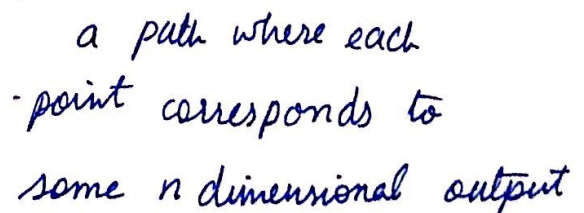 a path where each
point corresponds to
some n dimensional output